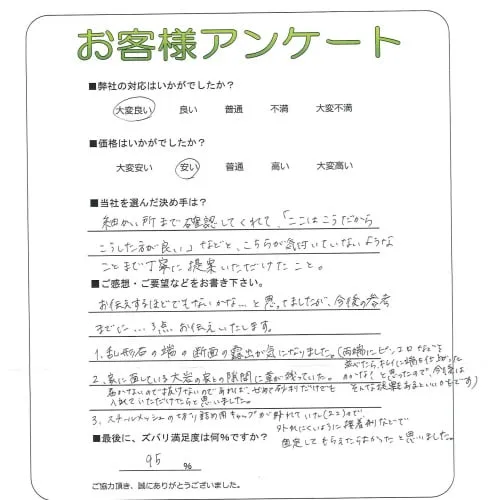 お客様アンケート
■弊社の対応はいかがでしたか？
大変良い 良い 普通 不満 大変不満
■価格はいかがでしたか？
大変安い 安い 普通 高い 大変高い
■当社を選んだ決め手は？
細かい所まで確認してくれて、「ここはこうだから
こうした方が良い」などと、こちらが気付いていないような
ことまで丁寧に提案いただけたこと。
■ご感想・ご要望などをお書き下さい。
お伝えするほどでもないかな…と思ってましたが、今後の参考
までに…3点お伝えいたします。
1. 乱形石の端の断面の露出が気になりました。(両端にピンコロなどを
並べたら、キレイに端を仕上がった
かな？と思ったので、今後は
そんな提案もあるといいかもです)
2. 家に面している大岩の家との隙間に草が残っていた。
届かないので抜けないのであれば、せめて砂利だけでも
入れていただけたらと思いました。
3. スチールメッシュの 用キャップが外れていた(2コ)ので
外れにくいように接着剤などで
固定してもらえたらよかったと思いました。
■最後に、ズバリ満足度は何%ですか？
95 %
ご協力頂き、誠にありがとうございました。